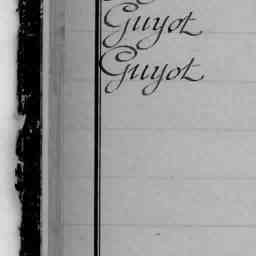 Guyot
Guyot